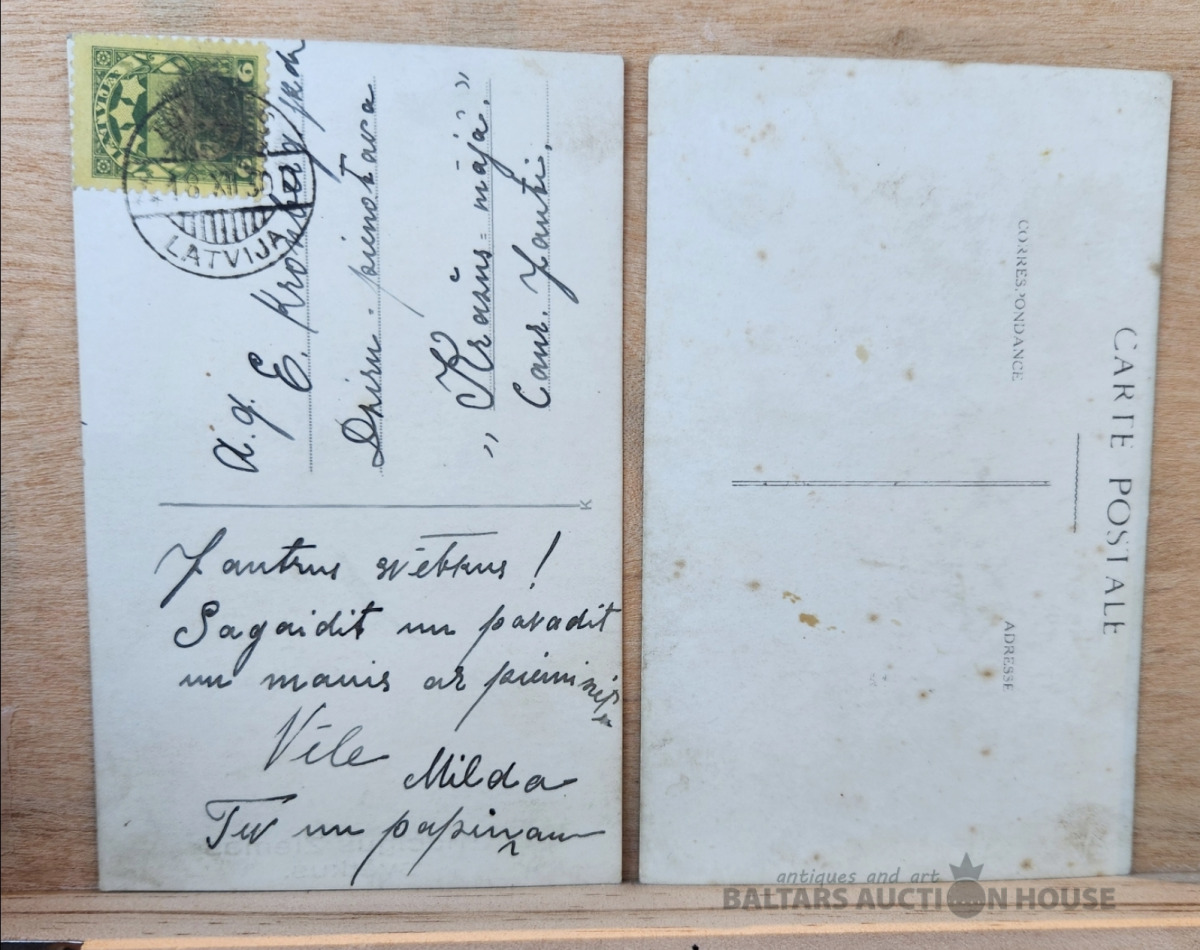 LATVIJA
6
18 XII 3
LATVIJA
A. g.
E. Kronberg jkdz
pienotava
"Krašus-māja."
Caur. Jauti.
K
Jautrus svētkus!
Sagaidīt un pavadīt
un manis ar piemi
Vēle
Milda
Tev un papiņam
CARTE POSTALE
CORRESPONDANCE
ADRESSE
antiques and art
BALTARS AUCTION HOUSE